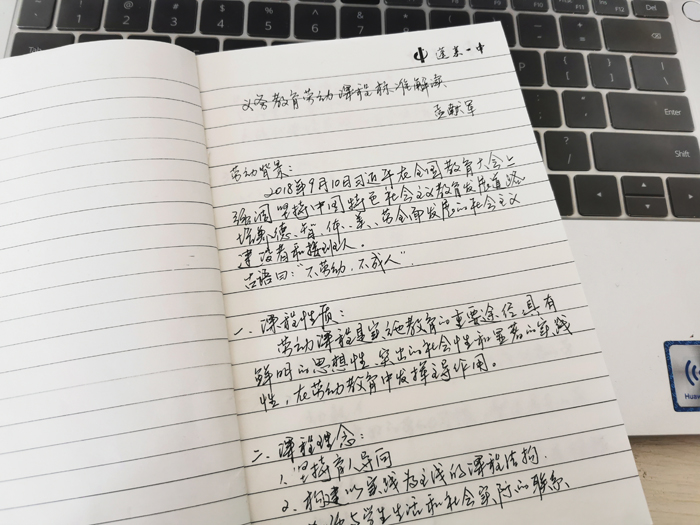 一中
义务教育劳动课程标准解读
劳动背景:
2018年9月10日习近平在全国教育大会上
强调坚持中国特色社会主义教育发展道路
培养德、智、体、美、劳全面发展的社会主义
建设者和接班人。
古语曰:"不劳动,不成人".
一、课程性质:
劳动课程是实施劳动教育的重要途径,具有
鲜明的思想性、突出的社会性和显著的实践
性,在劳动教育中发挥主导作用。
二、课程理念:
1. 坚持育人导向
2. 构建以实践为主线的课程结构.
与学生生活和社会实际的联系
Shift
Ctrl
PgUp
PgDn